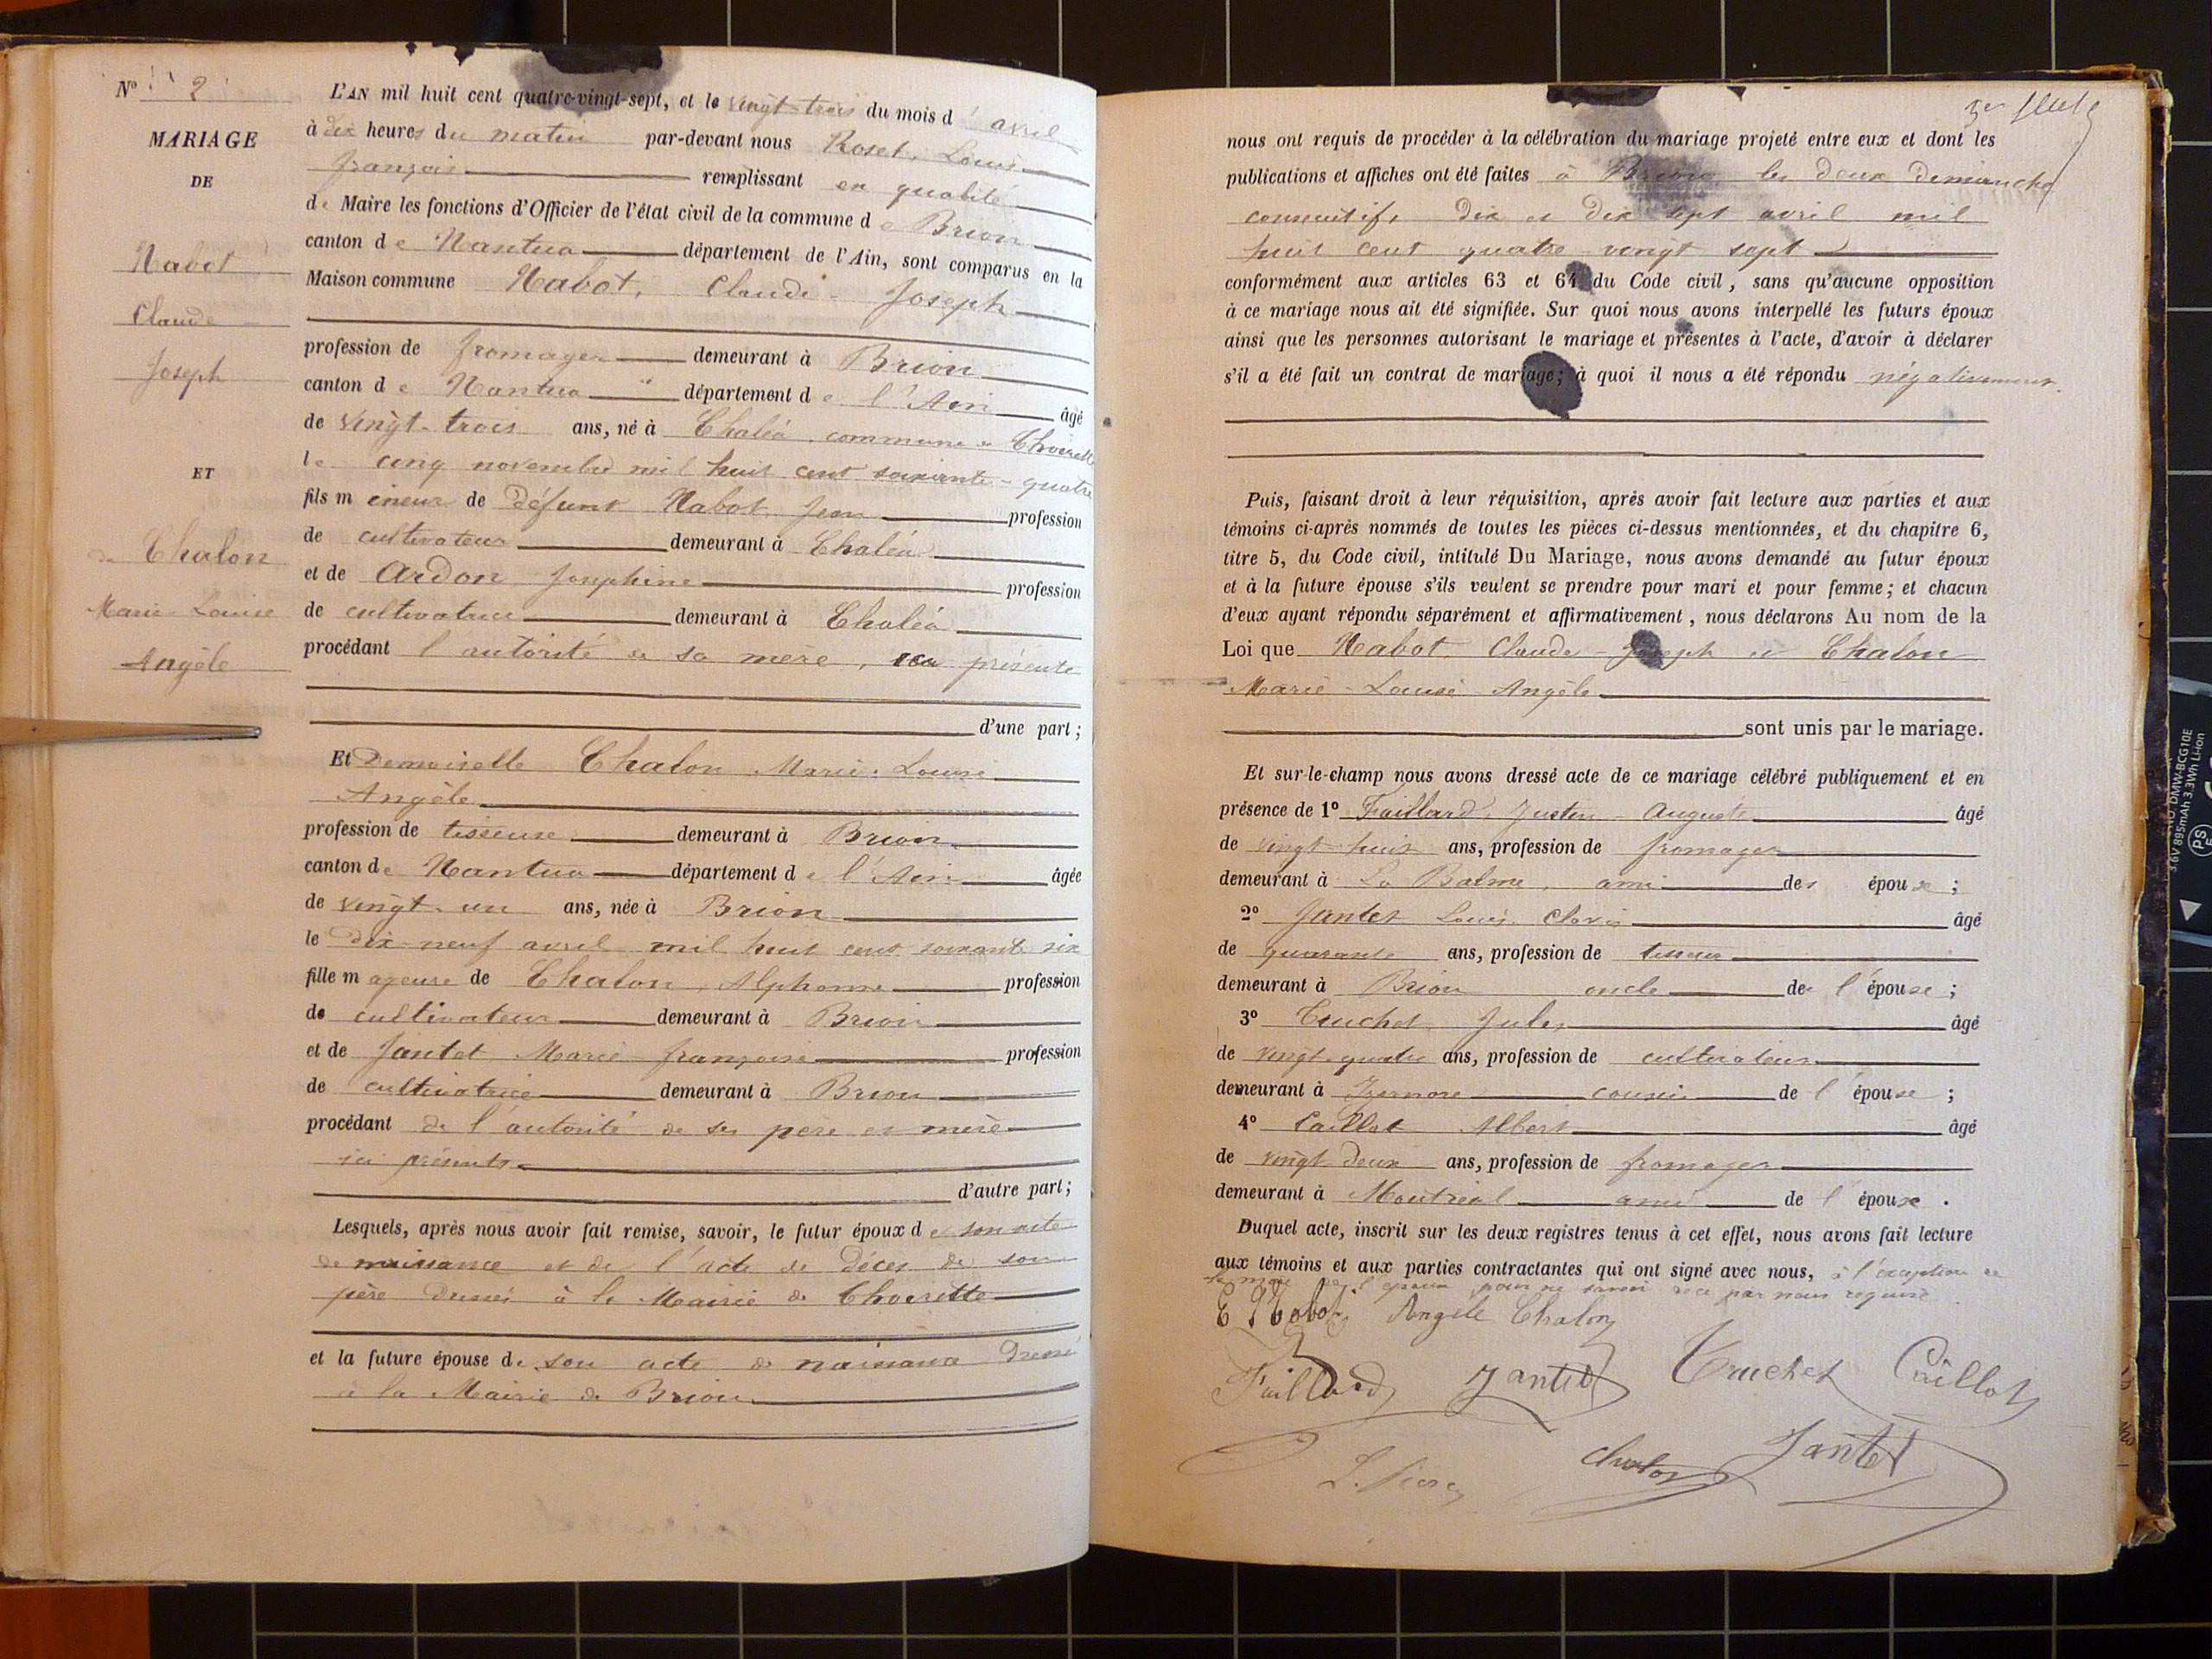 N° 2
MARIAGE
DE
Nabot
Claude
Joseph
ET
de Chalon
Marie-Louise
Angèle
L'AN mil huit cent quatre-vingt-sept, et le vingt-trois du mois d'avril
à dix heures du matin par-devant nous Roset, Louis
françois remplissant en qualité
de Maire les fonctions d'Officier de l'état civil de la commune de Brion
canton de Nantua département de l'Ain, sont comparus en la
Maison commune Nabot, Claude-Joseph
profession de fromager demeurant à Brion
canton de Nantua département de l'Ain âgé
de vingt-trois ans, né à Chaléa, commune de Thoirette
le cinq novembre mil huit cent soixante-quatre
fils mineur de défunt Nabot Jean profession
de cultivateur demeurant à Chaléa
et de Ardon Josephine profession
de cultivatrice demeurant à Chaléa
procédant l'autorité de sa mère, ici présente
d'une part;
Et Demoiselle Chalon Marie-Louise
Angèle
profession de tisseuse demeurant à Brion
canton de Nantua département de l'Ain âgée
de vingt-un ans, née à Brion
le dix-neuf avril mil huit cent soixante six
fille majeure de Chalon, Alphonse profession
de cultivateur demeurant à Brion
et de Jantet Marie françoise profession
de cultivatrice demeurant à Brion
procédant de l'autorité de ses père et mère
ici présents
d'autre part;
Lesquels, après nous avoir fait remise, savoir, le futur époux de son acte
de naissance et de l'acte de décès de son
père dressés à la Mairie de Thoirette
et la future épouse de son acte de naissance dressé
à la Mairie de Brion
nous ont requis de procéder à la célébration du mariage projeté entre eux et dont les
publications et affiches ont été faites à Brion les deux dimanche
consecutifs dix et dix sept avril mil
huit cent quatre-vingt sept
conformément aux articles 63 et 64 du Code civil, sans qu'aucune opposition
à ce mariage nous ait été signifiée. Sur quoi nous avons interpellé les futurs époux
ainsi que les personnes autorisant le mariage et présentes à l'acte, d'avoir à déclarer
s'il a été fait un contrat de mariage; à quoi il nous a été répondu négativement.
Puis, faisant droit à leur réquisition, après avoir fait lecture aux parties et aux
témoins ci-après nommés de toutes les pièces ci-dessus mentionnées, et du chapitre 6,
titre 5, du Code civil, intitulé Du Mariage, nous avons demandé au futur époux
et à la future épouse s'ils veulent se prendre pour mari et pour femme; et chacun
d'eux ayant répondu séparément et affirmativement, nous déclarons Au nom de la
Loi que Nabot Claude-Joseph et Chalon
Marie-Louise Angèle
sont unis par le mariage.
Et sur-le-champ nous avons dressé acte de ce mariage célébré publiquement et en
présence de 1° Faillard, Justin-Auguste âgé
de vingt huit ans, profession de fromager
demeurant à La Balme, ami des épouse;
2° Jantet Louis Clovis âgé
de quarante ans, profession de tisseur
demeurant à Brion oncle de l'épouse;
3° Truchet Jules âgé
de vingt-quatre ans, profession de cultivateur
demeurant à Izernore cousin de l'épouse;
4° Caillat Albert âgé
de vingt-deux ans, profession de fromager
demeurant à Montréal ami de l'épouse.
Duquel acte, inscrit sur les deux registres tenus à cet effet, nous avons fait lecture
aux témoins et aux parties contractantes qui ont signé avec nous, à l'exception de
la mère de l'époux pour ne savoir de ce par nous requise
C Nabot Angèle Chalon
Faillard Jantet Truchet Caillat
Chalon Jantet